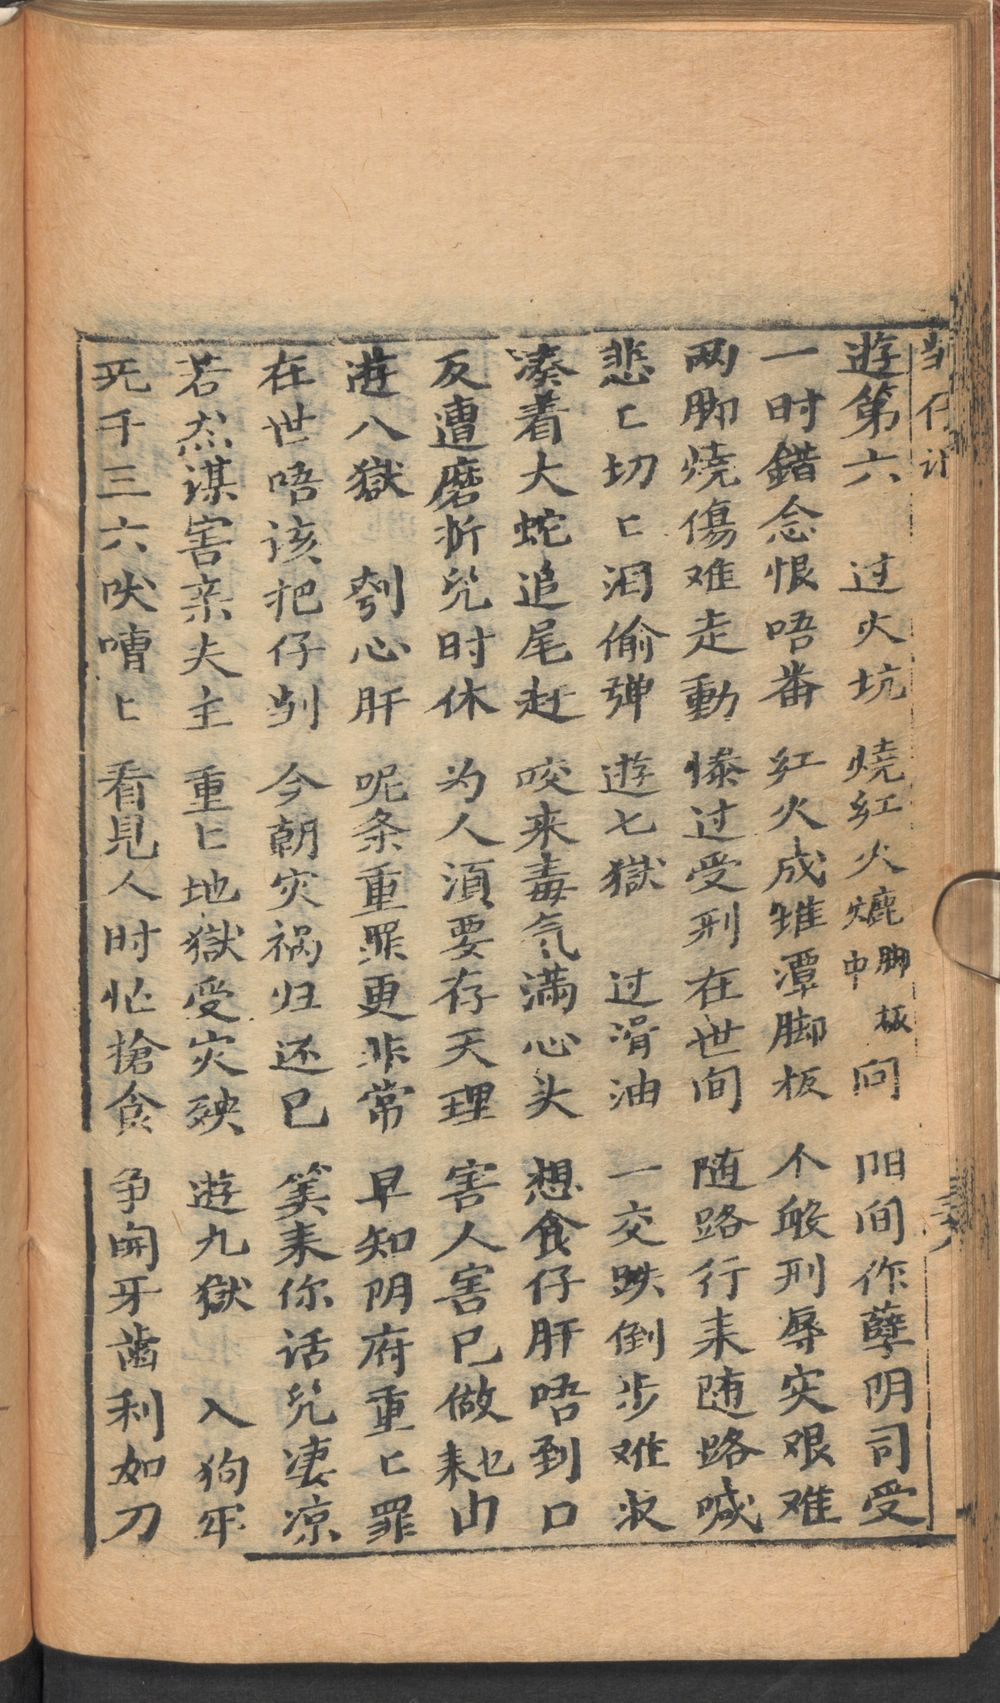 㓥仔记
遊第六　过火坑　燒紅火熝脚板㷫中问　阳间作孽阴司受
一时錯念恨唔番　紅火成雄潭脚板　个般刑辱实艰难
两脚燒傷难走動　慘过受刑在世间　随路行来随路喊
悲〻切〻泪偷弹　遊七獄　过滑油　一交跌倒步难收
凑着大蛇追尾赶　咬来毒气滿心头　想食仔肝唔到口
反遭磨折几时休　为人湏要存天理　害人害己做耒乜由
遊八獄　刳心肝　呢条重罪更非常　早知阴府重〻罪
在世唔该把仔㓥　今朝灾祸归还己　笑耒你话几凄凉
若然谋害亲夫主　重〻地獄受灾殃　遊九獄　入狗牢
死千三六吠嘈〻　看見人时忙搶食　争開牙齒利如刀